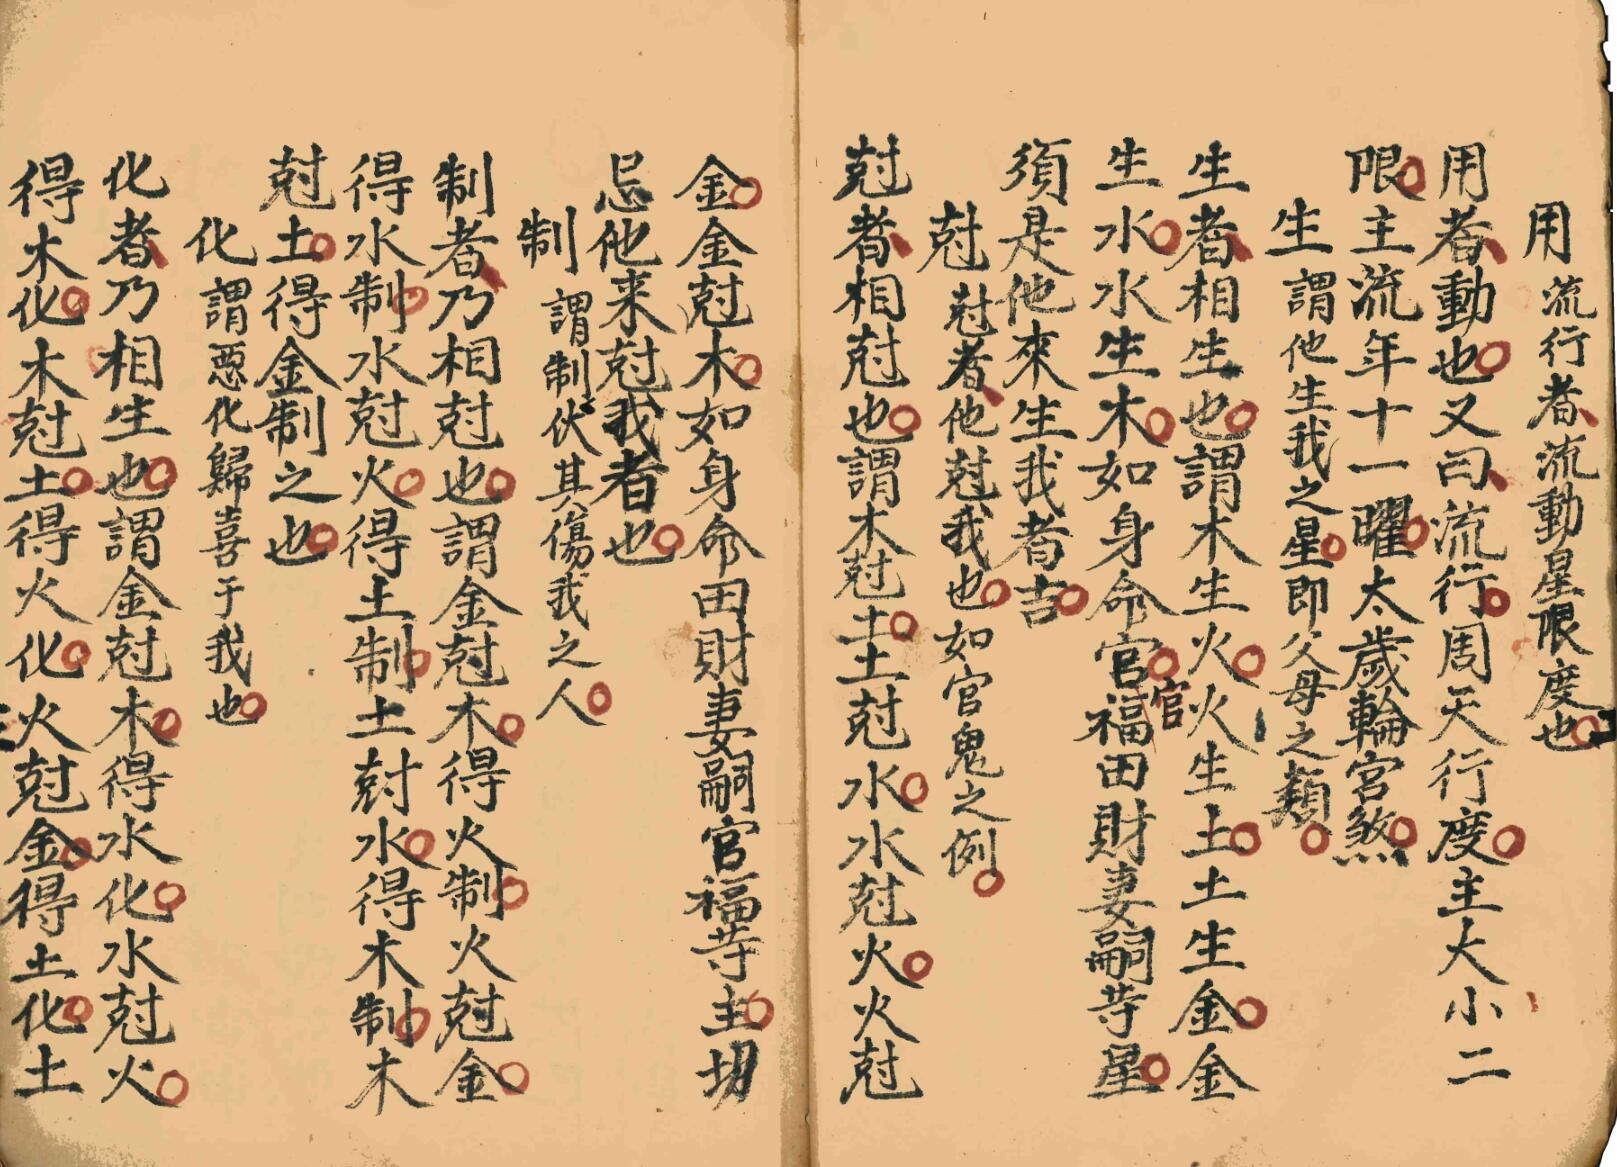 用 流行者流動星限度也
用者動也又曰流行周天行度主大小二
限主流年十一曜太歲輪宮煞
生 謂他生我之星即父母之類
生者相生也謂木生火火生土土生金金
生水水生木如身命官福田財妻嗣䓁星
官
須是他來生我者吉
尅 尅者他尅我也如官鬼之例
尅者相尅也謂木尅土土尅水水尅火火尅
金金尅木如身命田財妻嗣官福䓁主切
忌他来尅我者也
制 謂制伏其傷我之人
制者乃相尅也謂金尅木得火制火尅金
得水制水尅火得土制土尅水得木制木
尅土得金制之也
化 謂惡化歸喜于我也
化者乃相生也謂金尅木得水化水尅火
得木化木尅土得火化火尅金得土化土